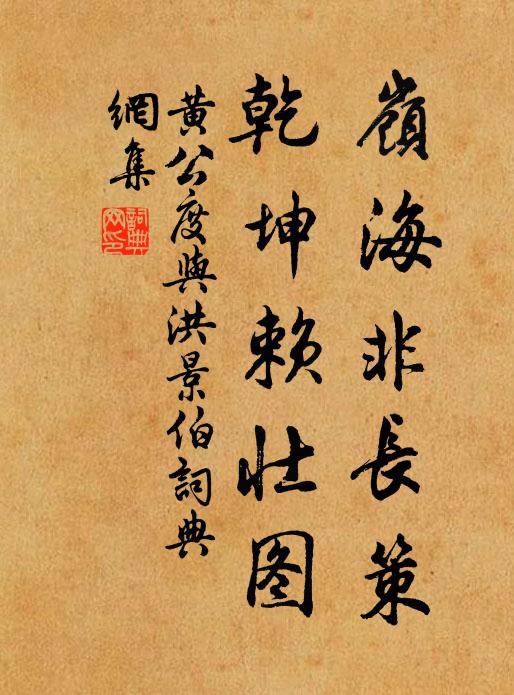 嶺海非長策
乾坤賴壯图
黄公度與洪景伯詞典
網集
詞典
网印